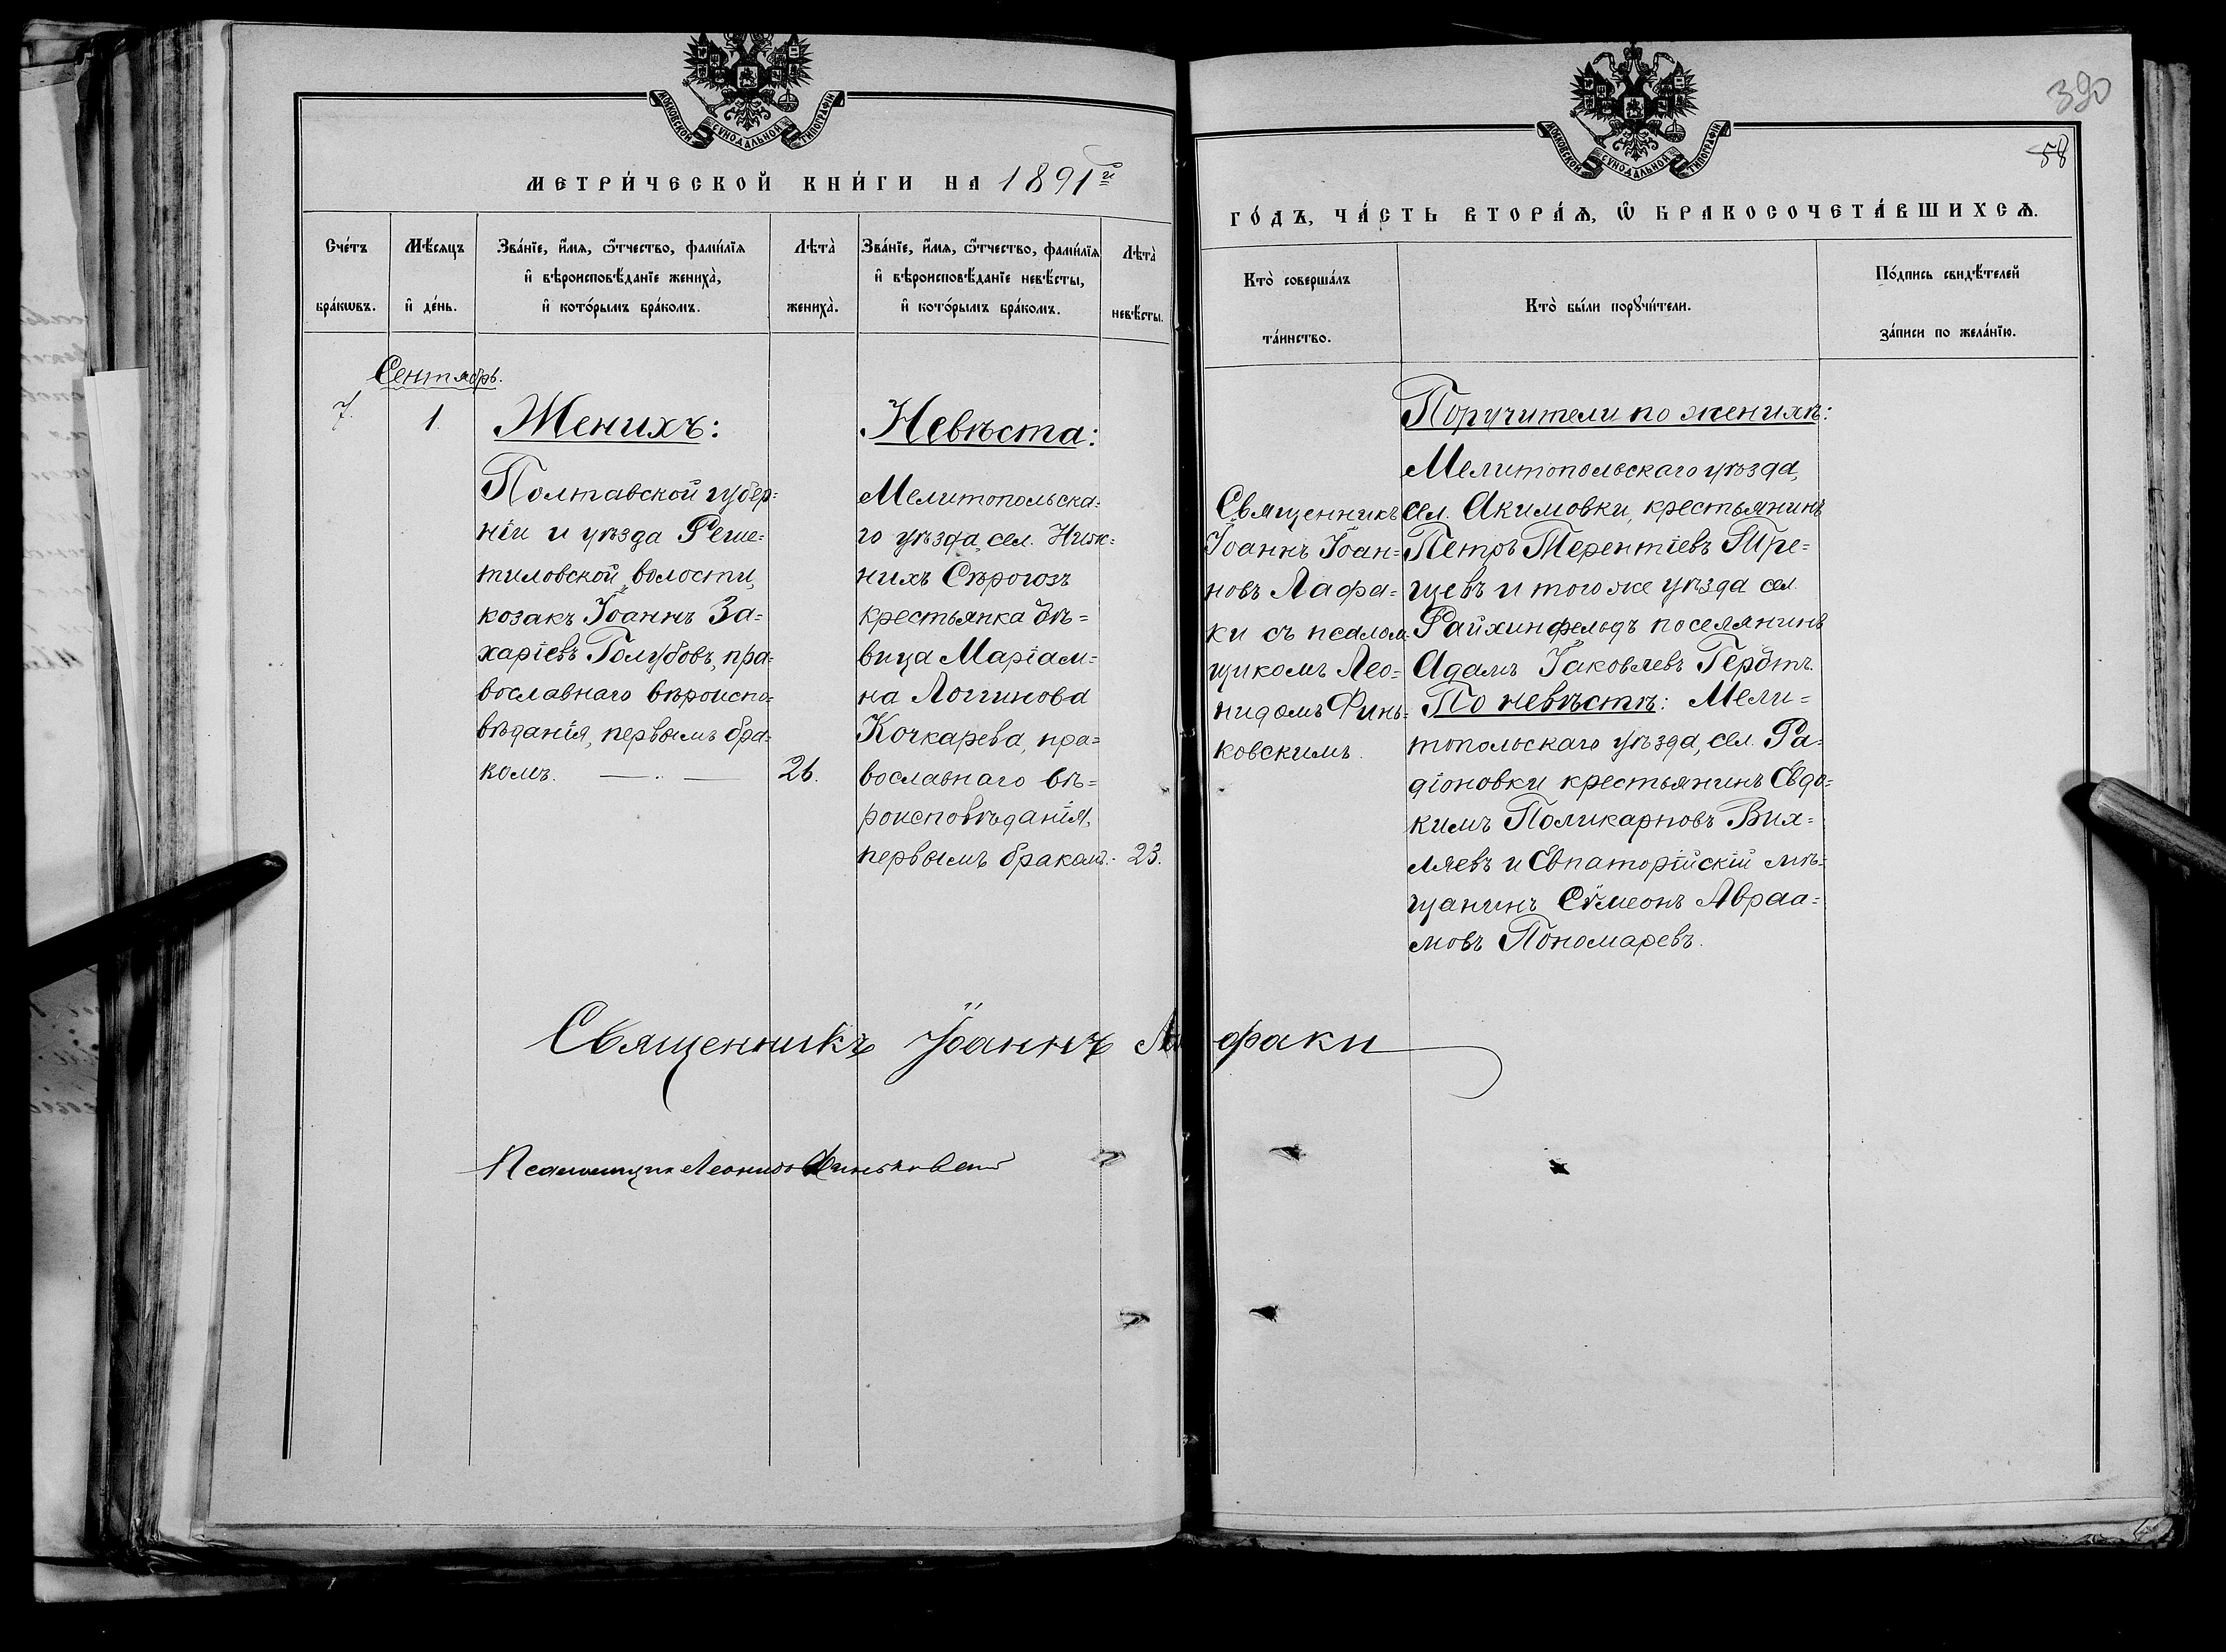 МОСКОВСКОЙ СѴНОДАЛЬНОЙ ТИПОГРАФІИ
МЕТРИ́ЧЕСКОЙ КНИ́ГИ НА 1891й
Сче́тъ
бра́кѡвъ.
Мѣ́сяцъ
и҆ де́нь.
Зва́нїе, и҆́мя, ѻ҆́тчество, фами́лїя
и҆ вѣроисповѣ́данїе жениха̀,
и҆ кото́рымъ бра́комъ.
Лѣта̀
жениха̀.
Зва́нїе, и҆́мя, ѻ҆́тчество, фами́лїя
и҆ вѣроисповѣ́данїе невѣ́сты,
и҆ кото́рымъ бра́комъ.
Лѣта̀
невѣ́сты.
Сентябрь.
7.
1.
Женихъ:
Полтавской губер=
ніи и уѣзда Реше=
тиловской волости,
козакъ Іоаннъ За=
харіевъ Голубовъ, пра=
вославнаго вѣроиспо=
вѣданія, первымъ бра=
комъ. — . —
26.
Невѣста:
Мелитопольска=
го уѣзда, сел. Ниж=
нихъ Сѣрогозъ
крестьянка дѣ=
вица Маріам=
на Логгинова
Кочкарева, пра=
вославнаго вѣ=
роисповѣданія,
первымъ бракомъ.-
23.
Священникъ Іоаннъ Лафаки
Псаломщикъ Леонидъ Финьковскій
390
58
МОСКОВСКОЙ СѴНОДАЛЬНОЙ ТИПОГРАФІИ
ГО́ДЪ, ЧА́СТЬ ВТОРА́Ѧ, Ѡ҆ БРАКОСОЧЕТА́ВШИХСѦ.
Кто̀ соверша́лъ
та́инство.
Кто̀ бы́ли порꙋчи́тели.
По́дпись свидѣ́телей
за́писи по жела́нїю.
Священникъ
Іоаннъ Іоан=
новъ Лафа=
ки съ псалом=
щикомъ Лео=
нидомъ Финь=
ковскимъ.
Поручители по женихѣ:
Мелитопольскаго уѣзда,
сел. Акимовки, крестьянинъ
Петръ Терентіевъ Тре=
щевъ и того же уѣзда сел.
Райхинфельдъ поселянинъ
Адамъ Іаковлевъ Гердтъ.
По невѣстѣ: Мели=
топольскаго уѣзда, сел. Ра=
діоновки крестьянинъ Евдо=
кимъ Поликарповъ Вих=
ляевъ и Евпаторійскій мѣ=
щанинъ Сѵмеонъ Авраа=
мовъ Пономаревъ.